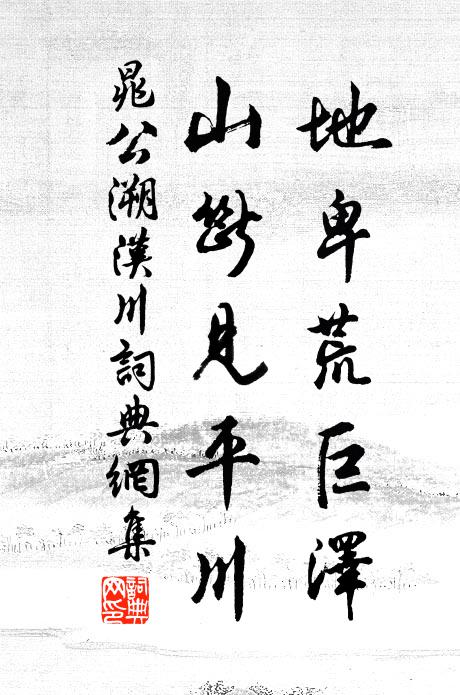 地卑荒巨澤
山斷見平川
晁公溯漢川詞典網集
詞典網印